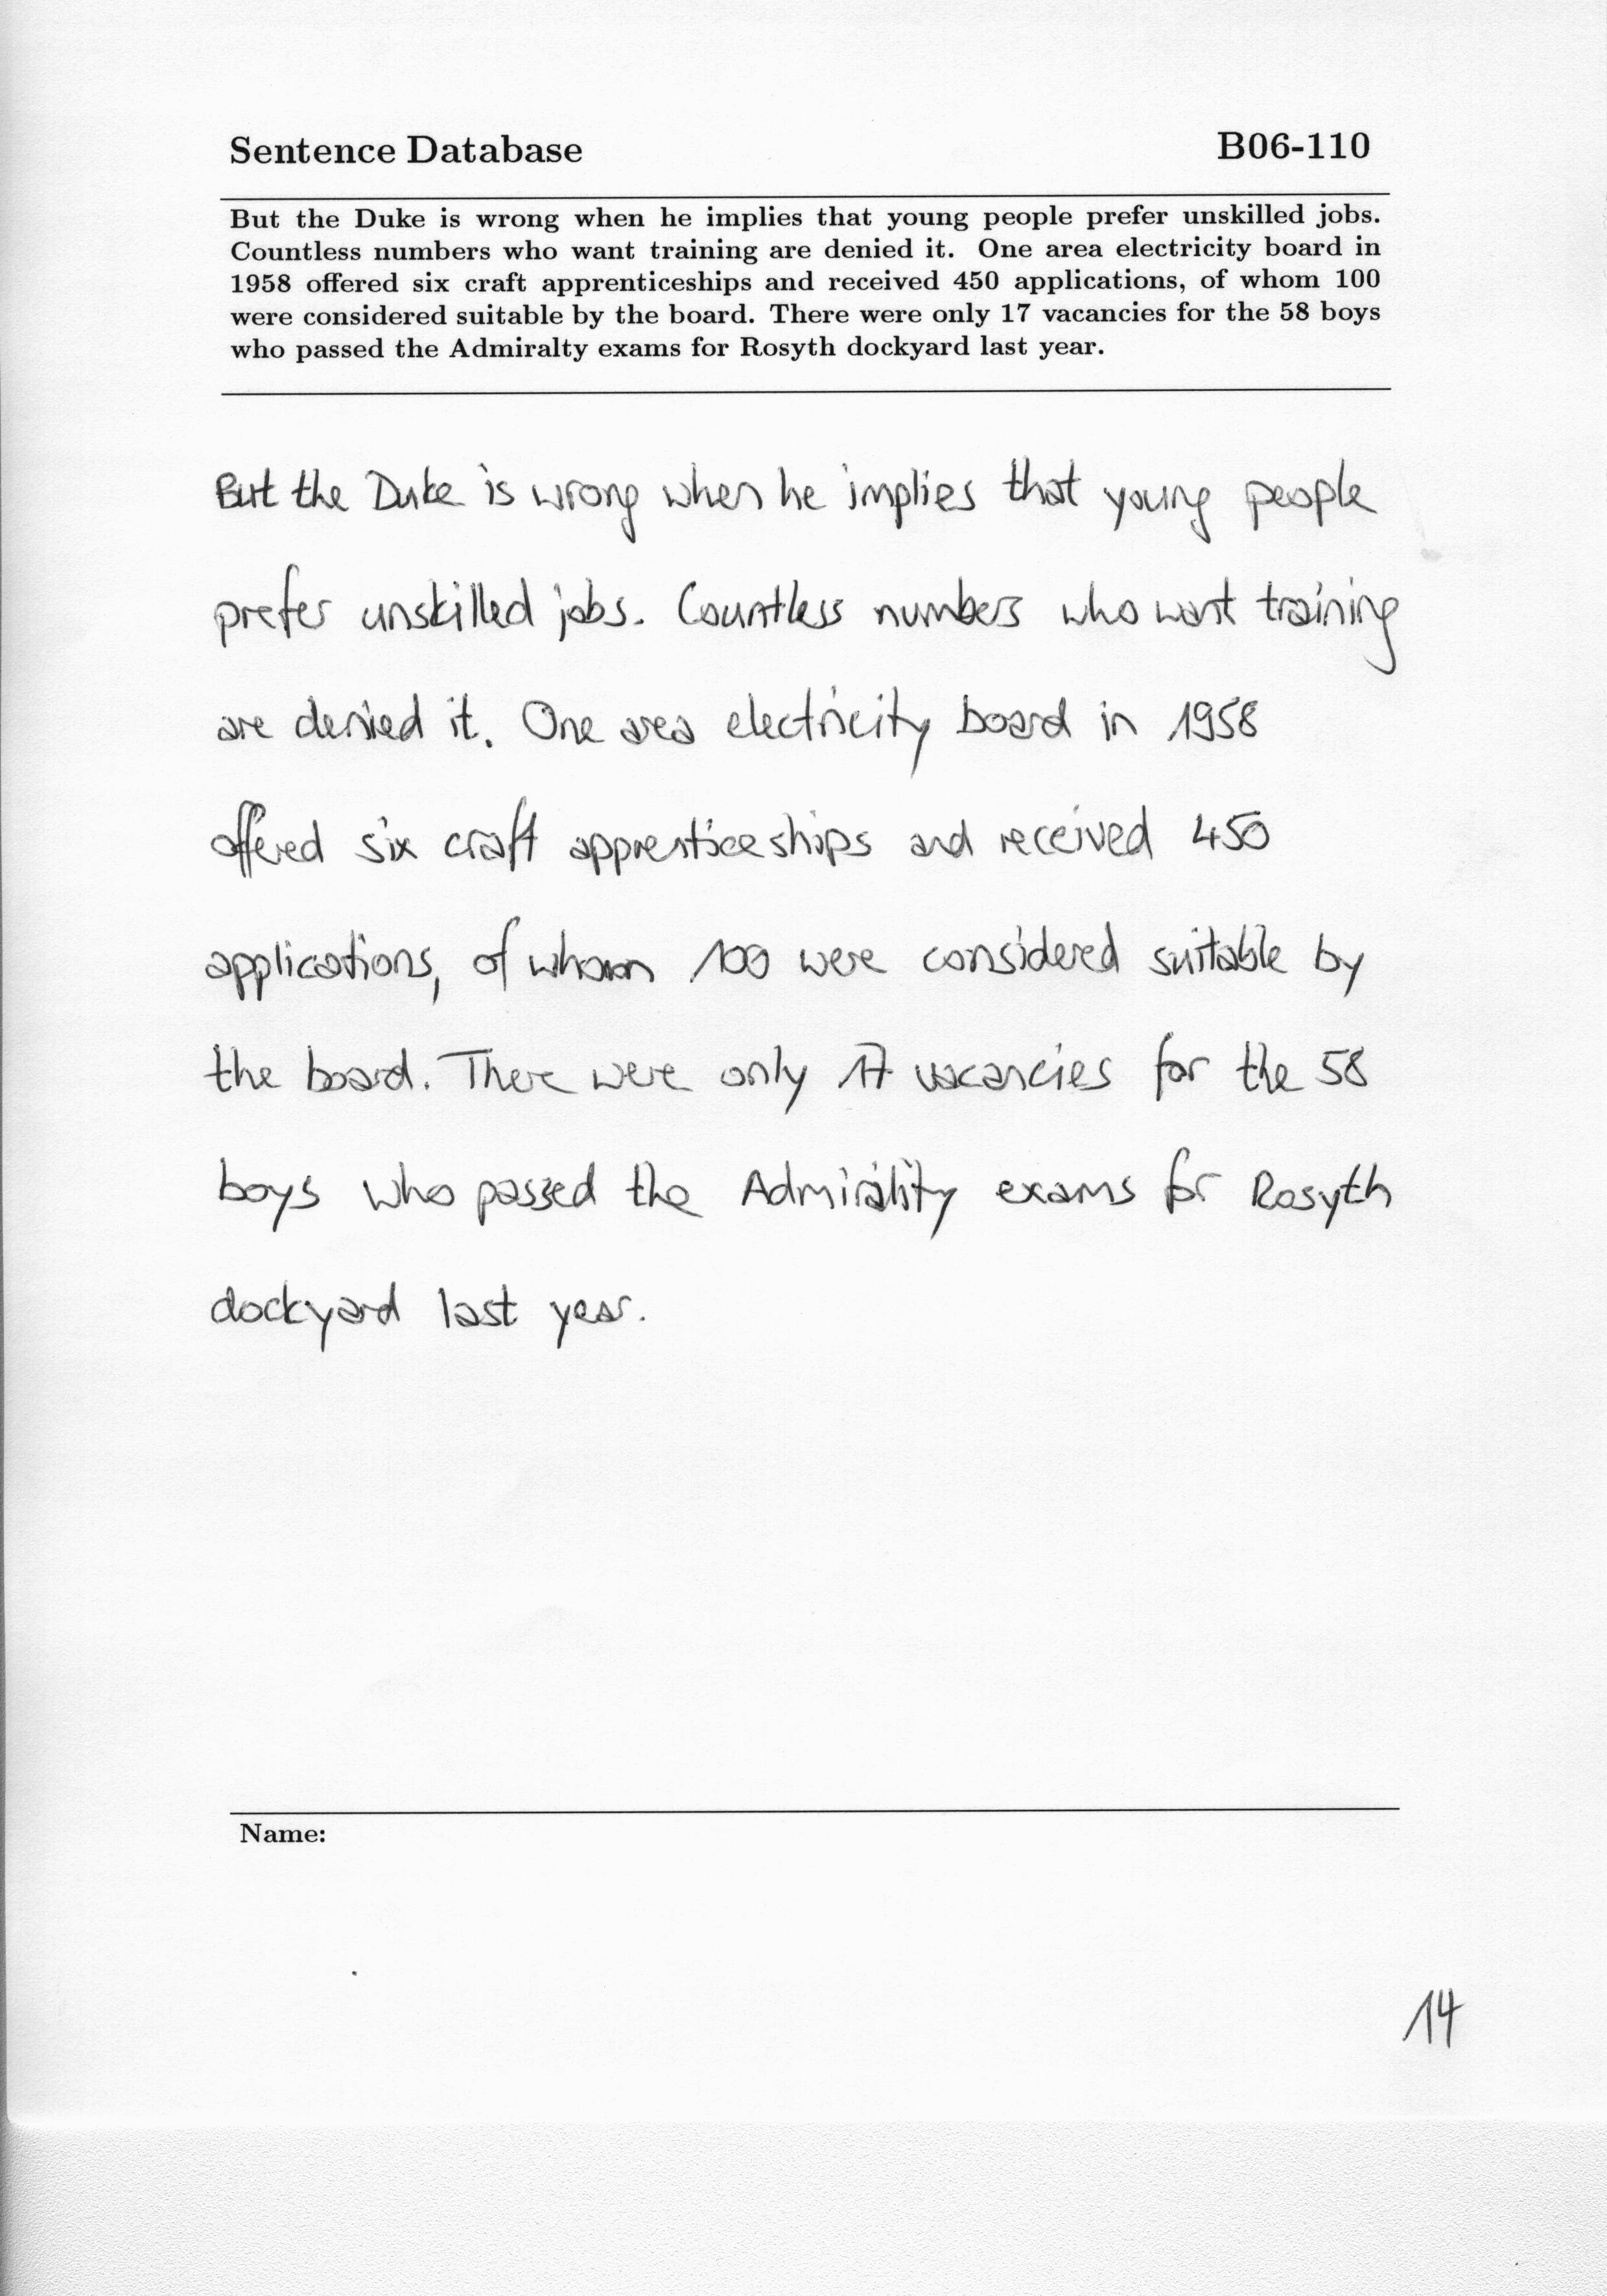 Sentence Database B06-110
But the Duke is wrong when he implies that young people prefer unskilled jobs.
Countless numbers who want training are denied it. One area electricity board in
1958 offered six craft apprenticeships and received 450 applications, of whom 100
were considered suitable by the board. There were only 17 vacancies for the 58 boys
who passed the Admiralty exams for Rosyth dockyard last year.
But the Duke is wrong when he implies that young people
prefer unskilled jobs. Countless numbers who want training
are denied it. One area electricity board in 1958
offered six craft apprenticeships and received 450
applications, of whom 100 were considered suitable by
the board. There were only 17 vacancies for the 58
boys who passed the Admirality exams for Rosyth
dockyard last year.
Name:
14